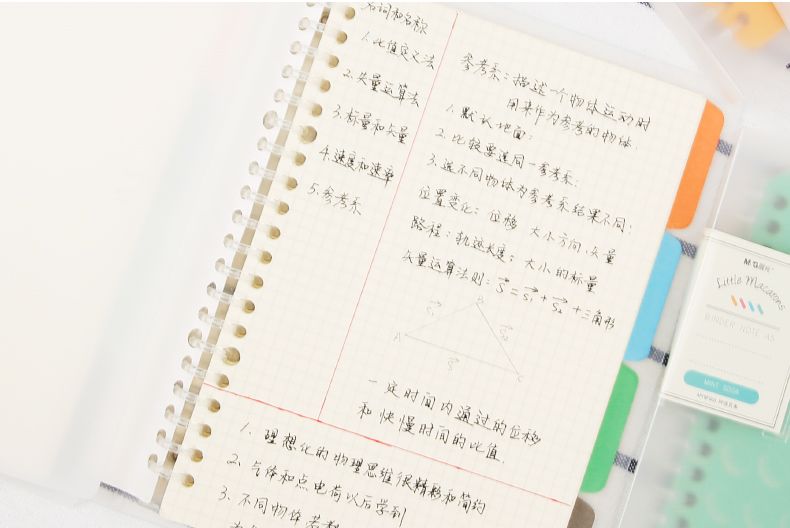 名词和名称
1. 比值定义法
2. 矢量运算法
3. 标量和矢量
4. 速度和速率
5. 参考系
参考系：描述一个物体运动时
用来作为参考的物体.
1. 默认地面；
2. 比较要选同一参考系；
3. 选不同物体为参考系结果不同；
位置变化：位移 大小方向.矢量
路程：轨迹长度；大小的标量
矢量运算法则：S = S₁ + S₂ + 三角形
A
B
C
S₁
S₂
S
一定时间内通过的位移
和快慢时间的比值.
1. 理想化的物理思维很精彩和简约
2. 气体和点电荷以后学到
3. 不同物体若
M&G晨光
Little Macarons
BINDER NOTE A5
MINT SODA